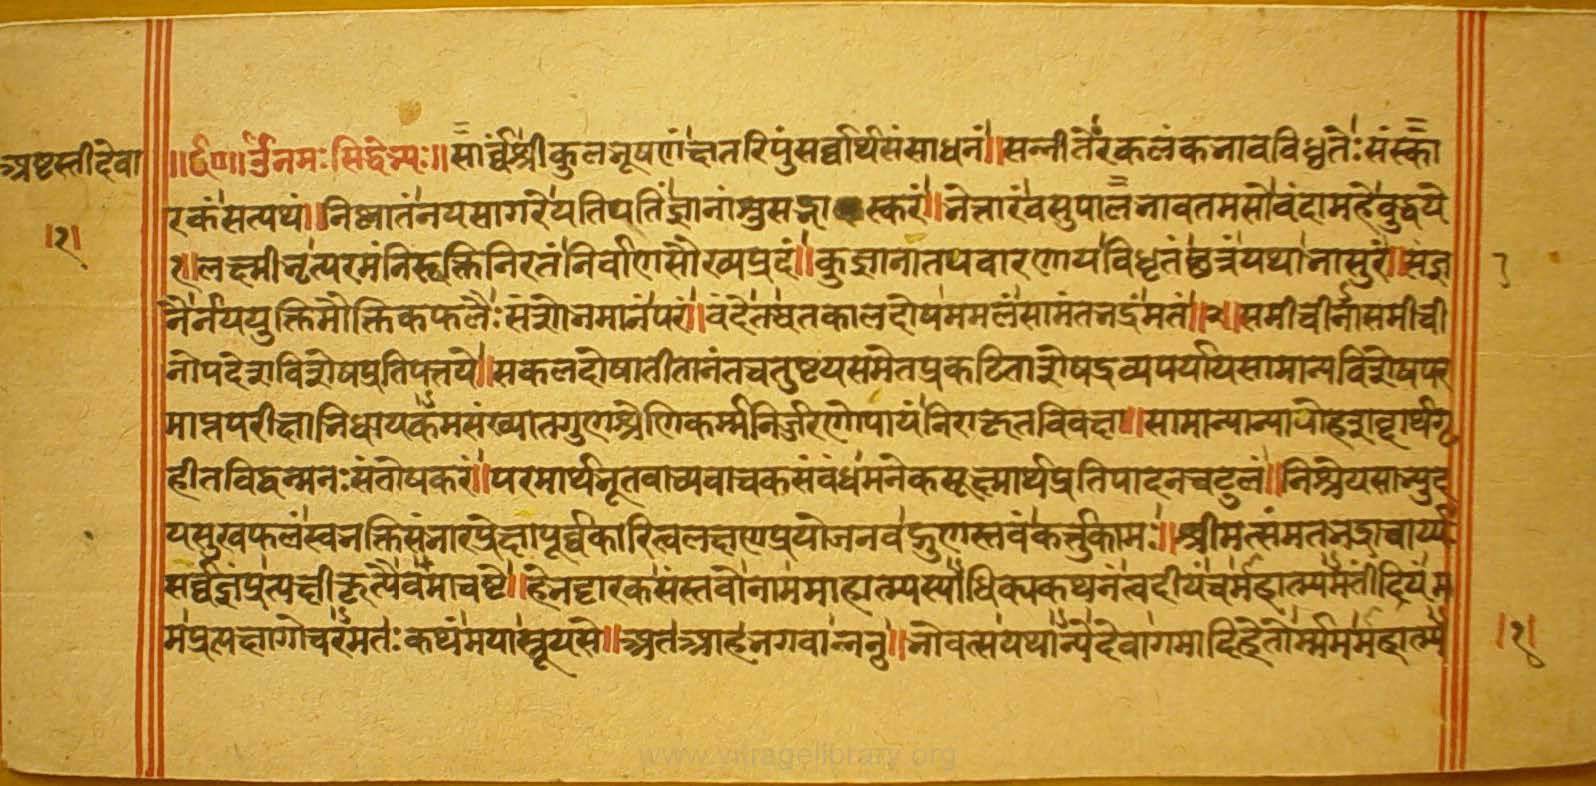 अष्टस्तीदेवा
॥१॥
॥र्द०॥र्उनमःसिद्धेभ्यः॥सार्व्वंश्रीकुलभूषणंक्षतरिपुंसर्व्वार्थसंसाधनं॥सन्नीतेरकलंकभावविधृतेःसंस्का
रकंसत्पथं॥निष्णातंनयसागरेयतिपतिंज्ञानांशुसद्भास्करं॥भेत्तारंवसुपालभावतमसोवंदामहेबुद्धये
१॥लक्ष्मीभृत्परमंनिरुक्तिनिरतंनिर्वाणसौख्यप्रदं॥कुज्ञानातपवारणायविधृतंछत्रंयथाभासुरं॥संज्ञ
नैर्नययुक्तिमौक्तिकफलैःसंशोभमानंपरं॥वंदेतद्धतकालदोषममलंसामंतभद्रंमतं॥२॥समीचीनासमीची
नोपदेशविशेषप्रतिपत्तये॥सकलदोषातीतानंतचतुष्टयसमेतप्रकटिताशेषद्रव्यपर्यायसामान्यविशेषपर
मात्मपरीक्षाभिधायकमसंख्यातगुणश्रेणिकर्म्मनिर्जरणोपायंनिराकृतविवक्षा॥सामान्यान्यापोहशब्दार्थगृ
हीतविद्वन्मनःसंतोषकरं॥परमार्थभूतवाच्यवाचकसंबंधमनेकसूक्ष्मार्थप्रतिपादनचटुलं॥निश्रेयसाभ्युद
यसुखफलंस्वभक्तिसंभारप्रेक्षापूर्व्वकारित्वलक्षणप्रयोजनवद्गुणस्तवंकर्त्तुकामः॥श्रीमत्समंतभद्राचार्य्यः
सर्व्वज्ञंप्रत्यक्षीकृत्यैवमाचष्टे॥हेभट्टारकसंस्तवोनाममाहात्म्यस्याधिक्यकथनंत्वदीयंचमाहात्म्यमतींद्रियंम
मप्रत्यक्षागोचरमतःकथंमयास्तूयसे॥अतआहभगवान्ननु॥भोवत्सयथान्येदेवागमादिहेतोर्म्मममाहात्म्य
॥१॥
www.vitragelibrary.org